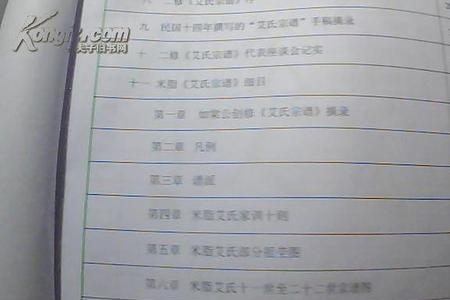 Kongfz.com
孔夫子旧书网
九 民国十四年撰写的“艾氏宗谱”手稿摘录
十 二修《艾氏宗谱》代表座谈会记实
十一 米脂《艾氏宗谱》细目
第一章 如棠公创修《艾氏宗谱》摘录
第二章 凡例
第三章 谱派
第四章 米脂艾氏家训十则
第五章 米脂艾氏部分祖茔图
第六章 米脂艾氏十一世至二十二世宗谱图